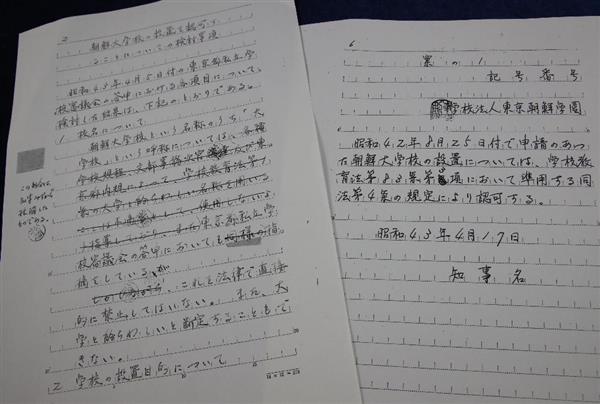 朝鮮大学校の設置を認可す
ることについての検討事項
昭和43年4月5日付の東京都私立学
校審議会の答申における各項目について、
検討した結果は、下記のとおりである。
1 校名について
朝鮮大学校という名称のうち「大
学校」という呼称については、各種
学校規程、文部事務次官通達及び東
京都内規によって、学校教育法第1
条の大学と紛らわしい名称を用いる
また東京都私立学
校審議会の答申においても同様の指
摘をしているが
、これを法律で直接
的に禁止してはいない。また、大
学と紛らわしいと断定することもで
きない。
2 学校の設置目的について
6
案の1
記号番号
学校法人東京朝鮮学園
昭和42年8月25日付で申請のあっ
た朝鮮大学校の設置については、学校教
育法第83条第 項において準用する同
法第4条の規定により認可する。
昭和43年4月17日
知事名